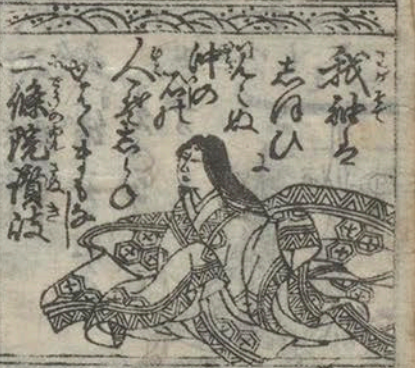 我袖は
しほひに
見えぬ
沖の
石の
人こそしらね
かはくまもなし
二條院讃岐